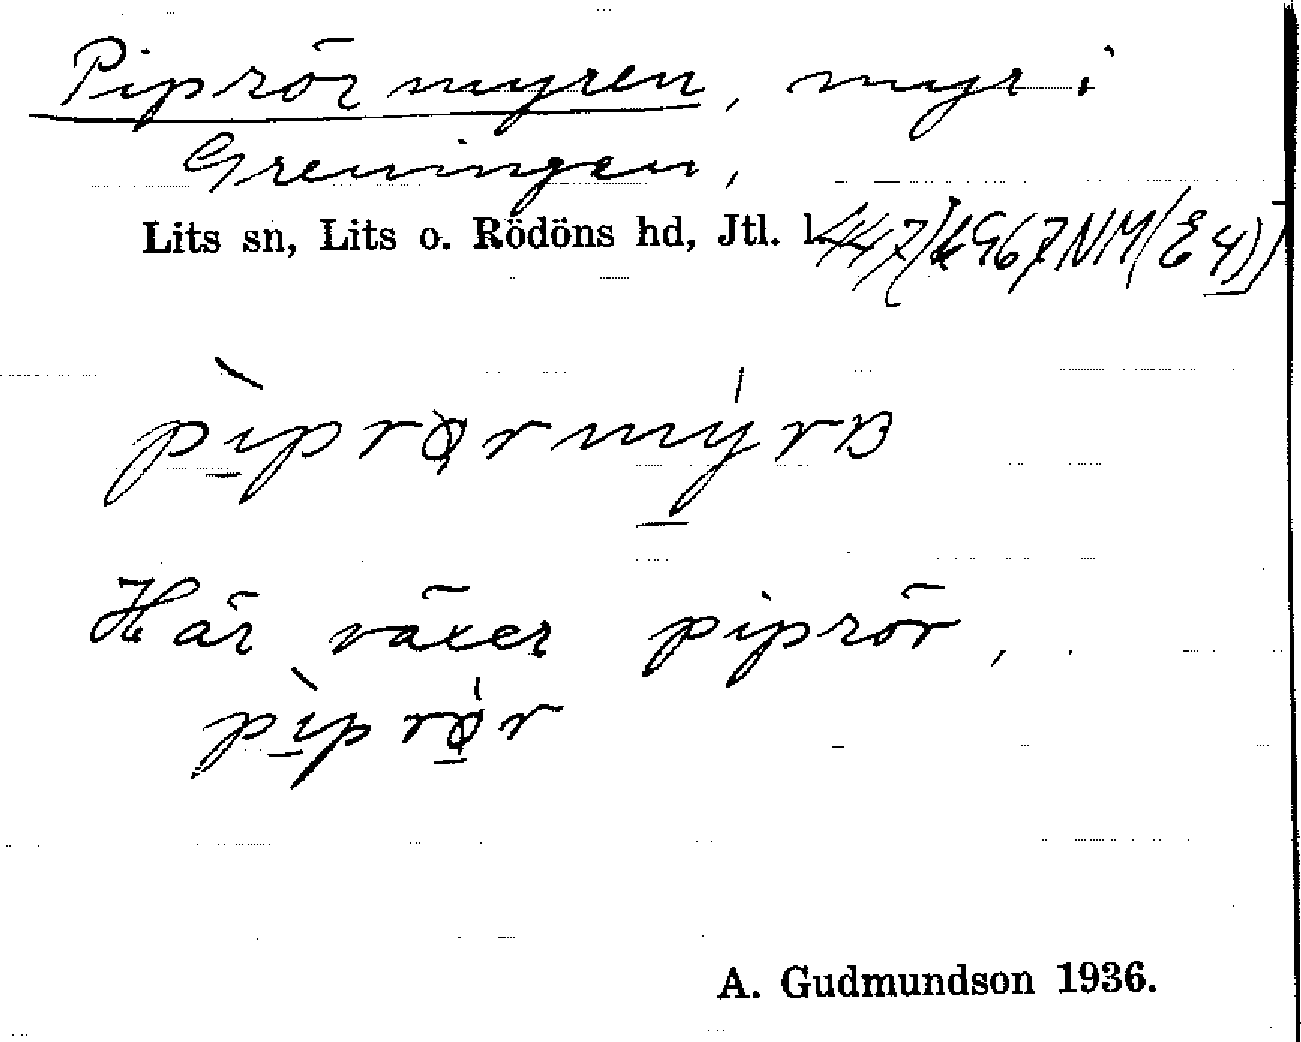 Piprörmyren, myr i
Greningen,
Lits sn, Lits o. Rödöns hd, Jtl. l.
pìprørmýrɞ
Här växer piprör,
pìprør
A. Gudmundson 1936.